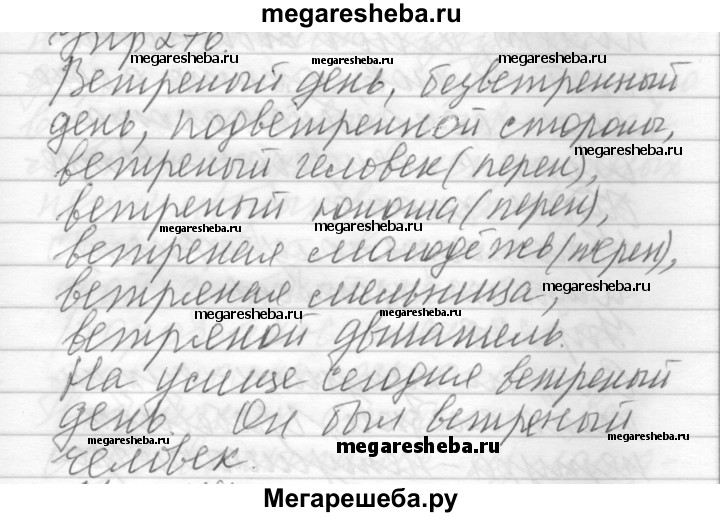 megaresheba.ru
Упр 276.
megaresheba.ru megaresheba.ru megaresheba.ru
Ветреный день, безветренный
день, подветренной стороны,
megaresheba.ru
ветреный человек (перен),
ветреный юноша (перен),
megaresheba.ru
ветреная молодёжь (перен),
ветряная мельница,
megaresheba.ru
megaresheba.ru megaresheba.ru
ветряной двигатель.
На улице сегодня ветреный
день. Он был ветреный
megaresheba.ru megaresheba.ru megaresheba.ru
человек.
Мегарешеба.ру